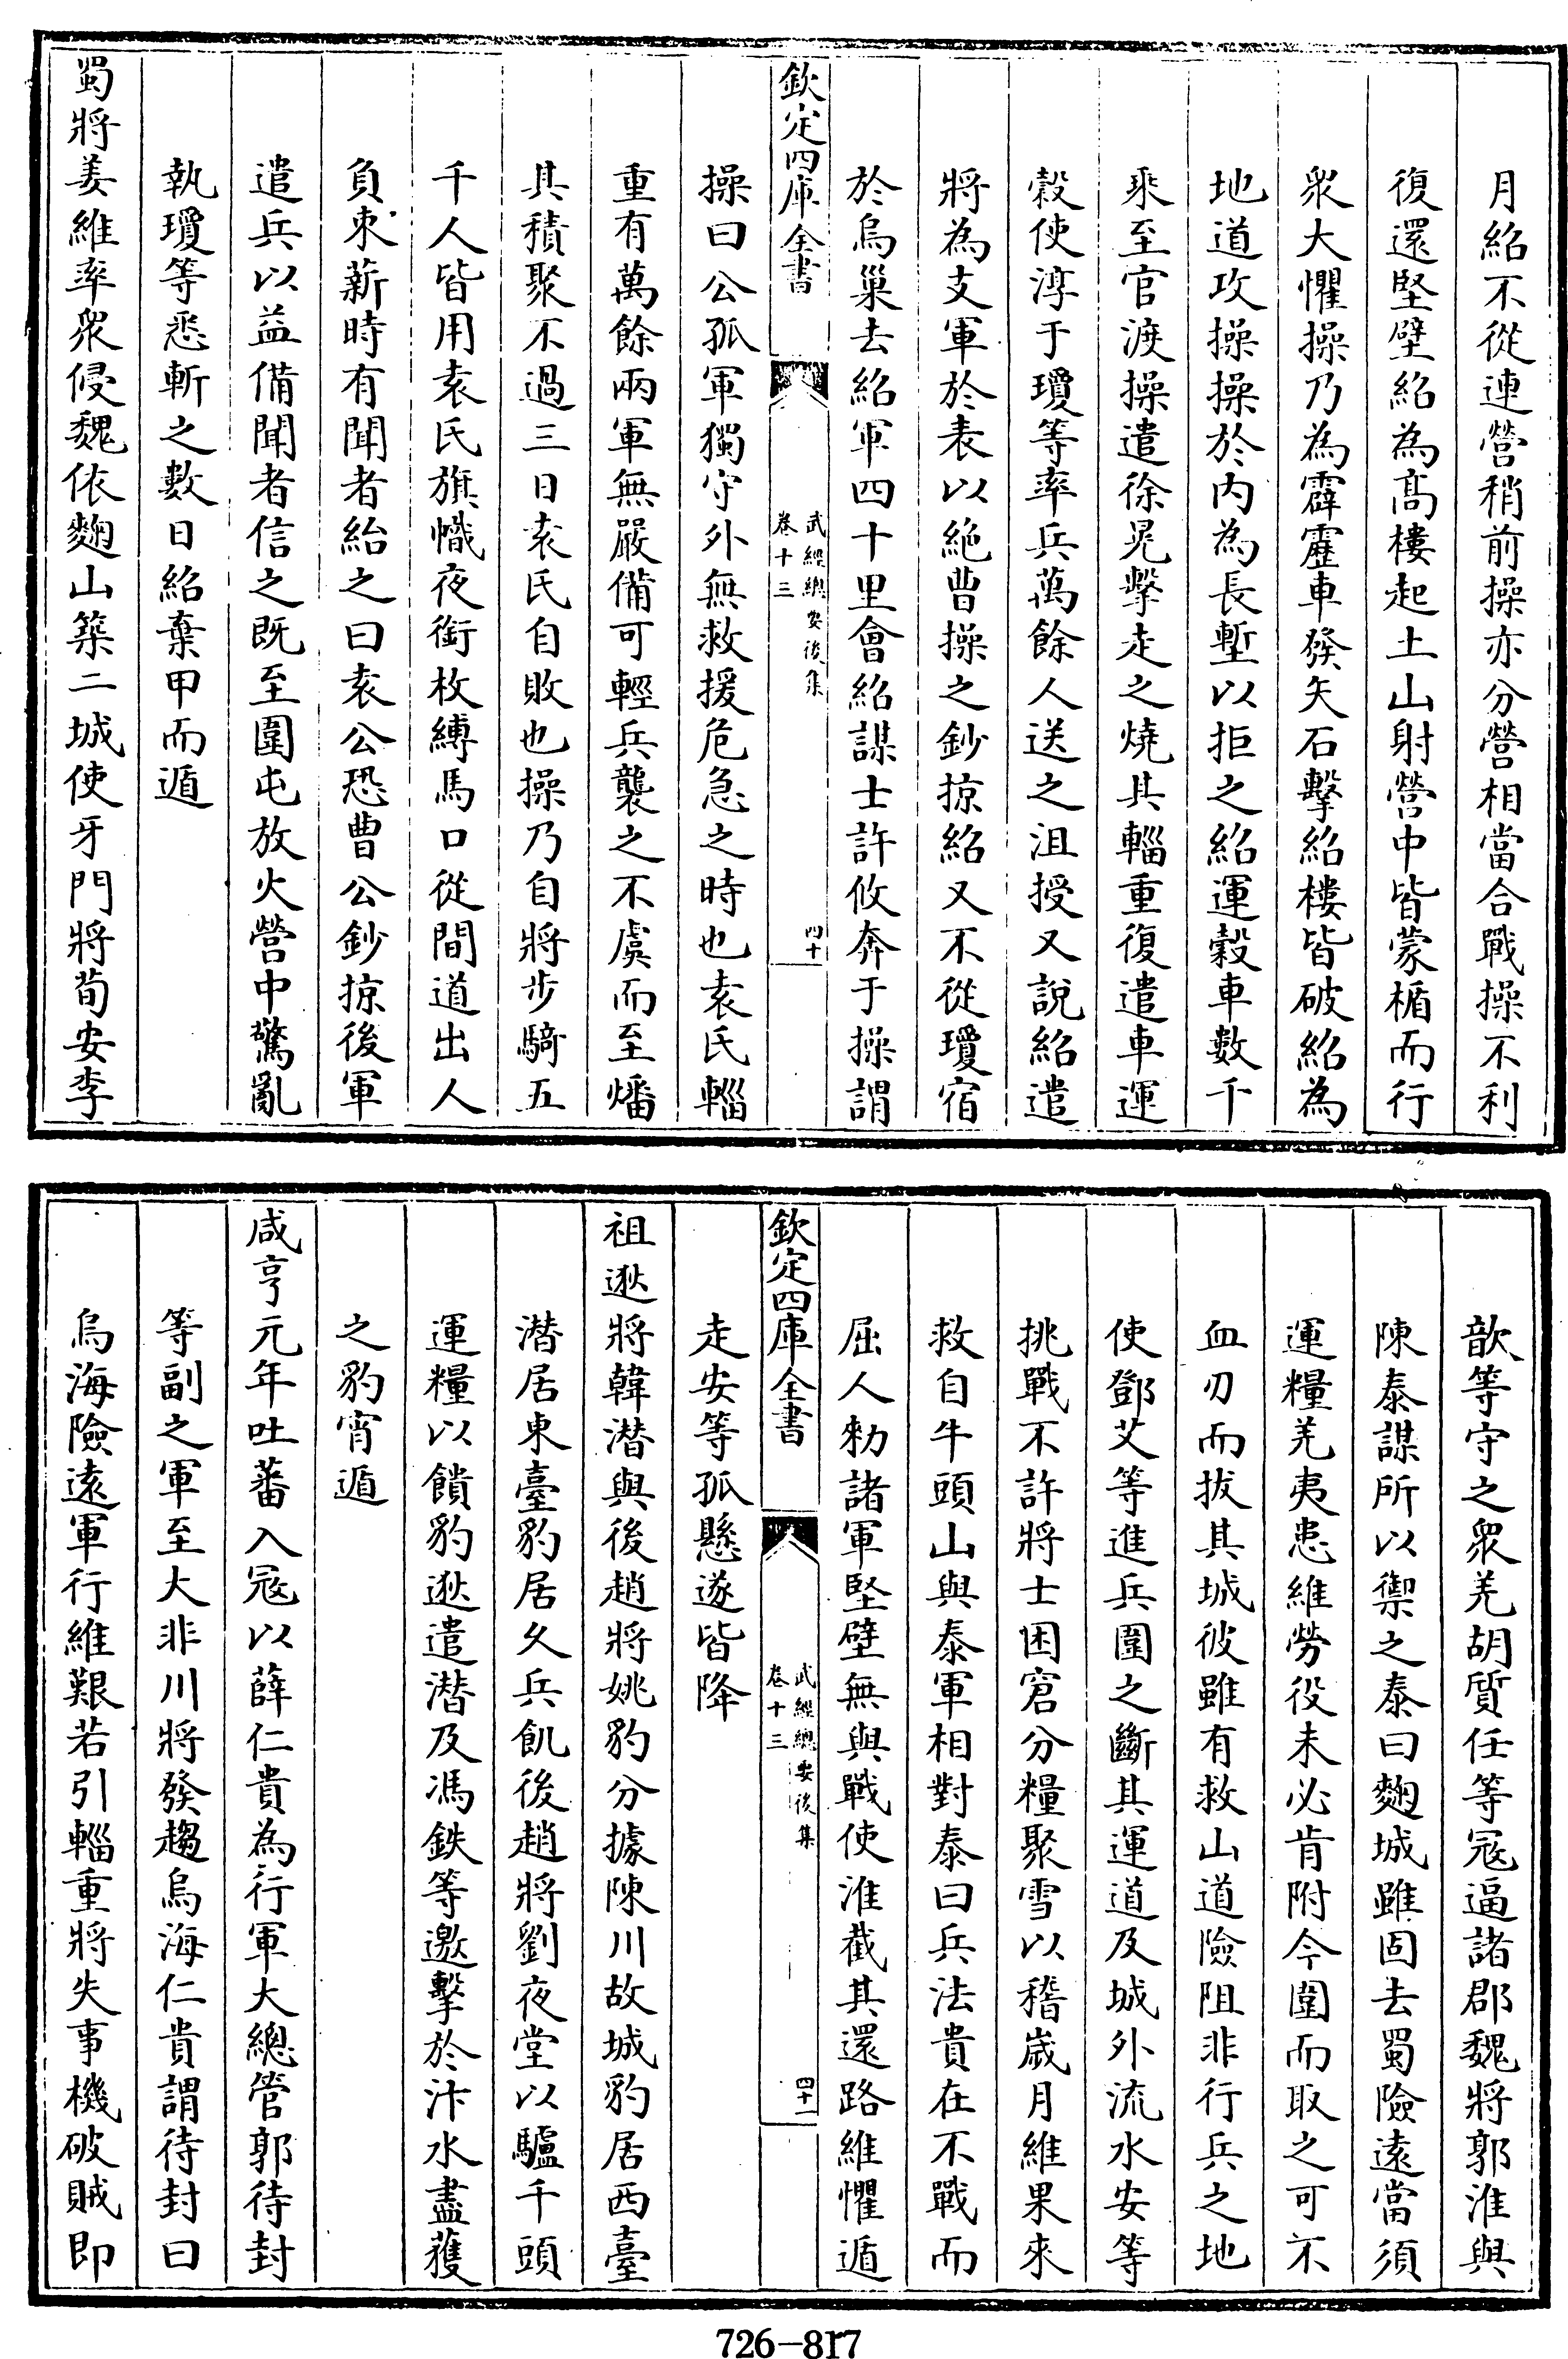 月紹不從連營稍前操亦分營相當合戰操不利
復還堅壁紹為髙樓起土山射營中皆蒙楯而行
衆大懼操乃為霹靂車發矢石擊紹樓皆破紹為
地道攻操操於内為長塹以拒之紹運穀車數千
乘至官渡操遣徐晃擊走之燒其輜重復遣車運
穀使淳于瓊等率兵萬餘人送之沮授又說紹遣
將為支軍於表以絶曹操之鈔掠紹又不從瓊宿
於烏巢去紹軍四十里會紹謀士許攸奔于操謂
欽定四庫全書
武經總要後集
卷十三
四十
操曰公孤軍獨守外無救援危急之時也袁氏輜
重有萬餘兩軍無嚴備可輕兵襲之不虞而至燔
其積聚不過三日袁氏自敗也操乃自將步騎五
千人皆用袁氏旗幟夜銜枚縛馬口從間道出人
負束薪時有聞者紿之曰袁公恐曹公鈔掠後軍
遣兵以益備聞者信之既至圍屯放火營中驚亂
執瓊等悉斬之數日紹棄甲而遁
蜀將姜維率衆侵魏依麴山築二城使牙門將荀安李
歆等守之衆羌胡質任等冦逼諸郡魏將郭淮與
陳泰謀所以禦之泰曰麴城雖固去蜀險遠當須
運糧羌夷患維勞役未必肯附今圍而取之可不
血刃而拔其城彼雖有救山道險阻非行兵之地
使鄧艾等進兵圍之斷其運道及城外流水安等
挑戰不許將士困窘分糧聚雪以稽嵗月維果來
救自牛頭山與泰軍相對泰曰兵法貴在不戰而
屈人勑諸軍堅壁無與戰使淮截其還路維懼遁
欽定四庫全書
武經總要後集
卷十三
四十一
走安等孤懸遂皆降
祖逖將韓潛與後趙將姚豹分據陳川故城豹居西臺
潛居東臺豹居久兵飢後趙將劉夜堂以驢千頭
運糧以饋豹逖遣潛及馮鉄等邀擊於汴水盡獲
之豹宵遁
咸亨元年吐蕃入冦以薛仁貴為行軍大總管郭待封
等副之軍至大非川將發趨烏海仁貴謂待封曰
烏海險遠軍行維艱若引輜重將失事機破賊即
726-817